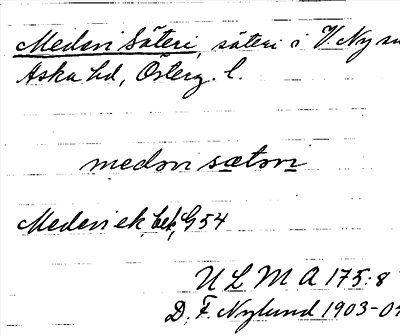 Medevi Säteri, säteri i V. Ny sn
Aska hd, Österg. l.
medəvi sætəri
Medevi ek. bek, G 54
U L M A 175:8
D. F. Nylund 1903-0